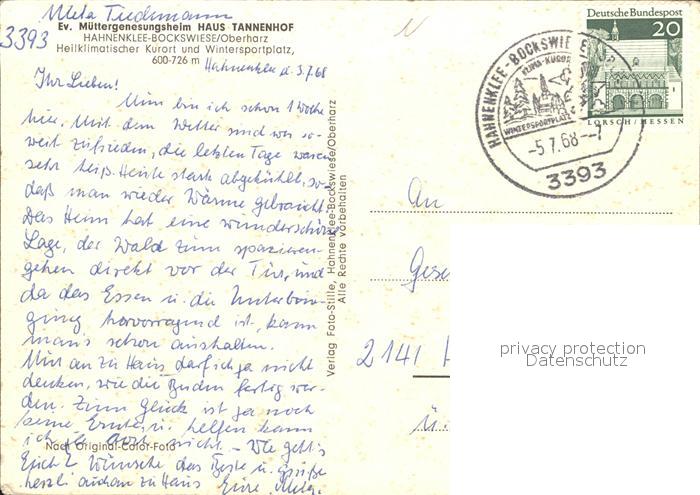 Meta Tiedemann
3393
Ev. Müttergenesungsheim HAUS TANNENHOF
HAHNENKLEE-BOCKSWIESE/Oberharz
Heilklimatischer Kurort und Wintersportplatz,
600-726 m
Hahnenklee d. 3.7.68
Ihr Lieben!
Nun bin ich schon 1 Woche
hier. Mit dem Wetter sind wir so-
weit zufrieden, die letzten Tage waren
sehr heiß. Heute stark abgekühlt, so
daß man wieder Wärme gebraucht.
Das Heim hat eine wunderschöne
Lage, der Wald zum spazieren-
gehen direkt vor der Tür, und
da das Essen u. die Unterbrin-
gung hervorragend ist, kann
man's schon aushalten.
Nur an zu Haus darf ich ja nicht
denken, wie die Buden fertig wer-
den. Zum Glück ist ja noch
keine Ernte, u. helfen kann
ich ja doch nicht. – Wie geht's
Euch? Wünsche das Beste u. Grüße
herzl. auch an zu Haus Eure Meta.
Nach Original-Color-Foto
Verlag Foto-Stille, Hahnenklee-Bockswiese/Oberharz
Alle Rechte vorbehalten
HAHNENKLEE-BOCKSWIE
WINTERSPORTPLATZ
-5.7.68
3393
Deutsche Bundespost
20
LORSCH/HESSEN
An
2141
privacy protection
Datenschutz